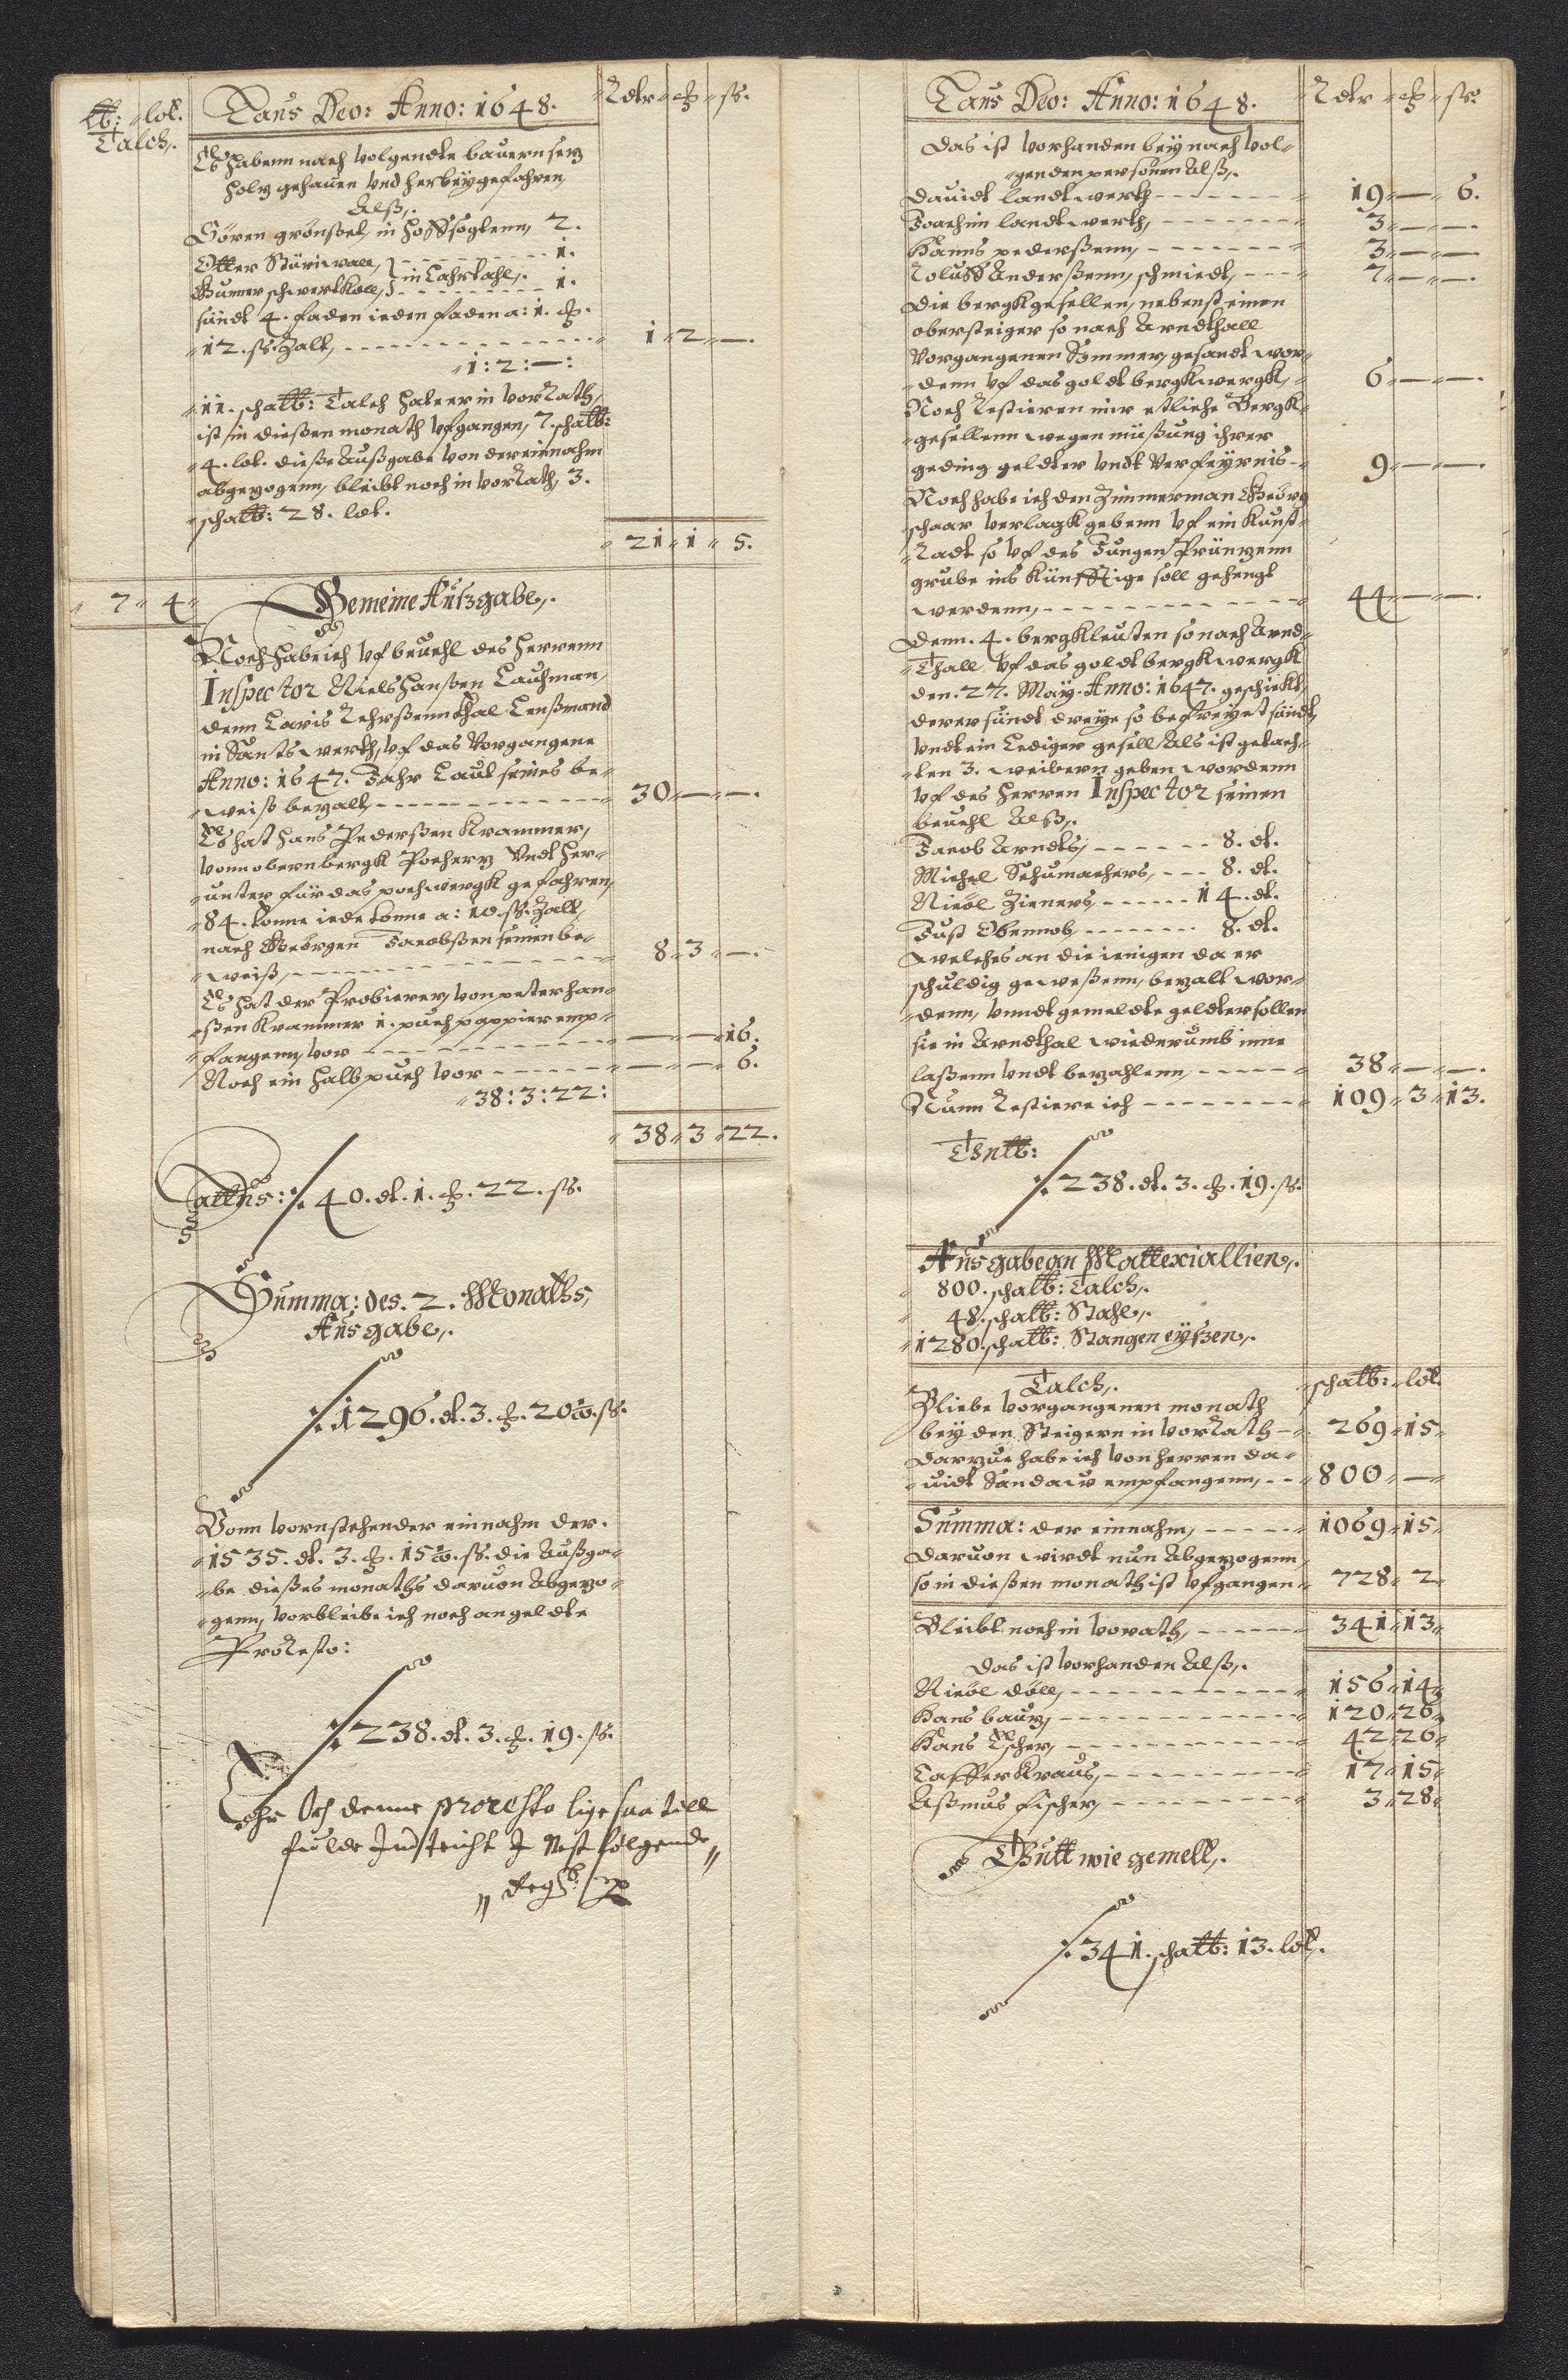 lb: lot.
Talch,.
Laus Deo: Anno: 1648.
Rdlr ß.
Es habenn nach volgendte bauern sez
holtz gehauen vnd herbeÿ gefahren,
Alß,.
Sören grönßet, in hoffsogtenn, 2.
Otter Stüri wall, - - - - 1.
Gunner schwertkoll, in Lahrtahl,. - - - - 1.
sündt 4. faden ieden faden a: 1.
12. ß. Zalt, - - - - 1 2 —.
1: 2: —:
11. schalb: Talch hat er in vorRath,
ist in dießen monath vfgangen, 7. schalb:
4. lot. dieße Außgabe von der einnahm
abgezogenn, bleibt noch in vorRath, 3.
schalb: 28. lot.
21 1 5.
7 4
Gemeine Außgabe,.
Noch habe ich vf beuehl des herrenn
Inspector Niels Hanßen Lauhman,
denn Laris Lehrßenn thal Lenßmand
in Sants werth, vf das vorgangene
Anno: 1647. Jahr Laut seines be-
weiß bezalt, - - - - 30 — —.
Es hat Hans Pederßen Krammer,
vonn obernbergk Pochertz vndt her-
unter für das pochwergk gefahren,
84. tonne iede tonne a: 10. ß. Zalt,
nach Geörgen Jacobßen seinen be-
weiß, - - - - 8 3 —.
Es hat der Probierer, von peter han-
ßen Krammer 1. puch pappier emp-
fangenn, vor - - - - — — 16.
Noch ein halb puch vor - - - - — — 6.
38: 3: 22:
38 3 22.
Lattus: 40. dl. 1. 22. ß.
Summa: des. 2. Monaths,
Ausgabe,.
1296. dl. 3. 20 ß.
Vonn vornstehender einnahm der.
1535. dl. 3. 15 ß. die Außga-
be dießes monaths daruon Abgezo-
genn, vorbleibe ich noch an geldte
ProResto:
238. dl. 3. 19. ß.
Och denne proresto lige saa till
fulde Indteicht I Nest følgende
Regsb:
Laus Deo: Anno: 1648.
Rdlr ß.
Das ist vorhanden beÿ nach vol-
genden personen Alß,.
Dauidt landtwerth - - - - 19 — 6.
Joachim landtwerth, - - - - 3 — —.
Hanns pederßenn, - - - - 3 — —.
Roluff Anderßenn, schmiedt, - - - 7 — —.
Die bergkgesellen, nebenst einen
obersteiger so nach Arndthall
Vorgangenen Sommer, gesandt wor-
denn vf das goldtbergkwergk, 6 — —.
Noch Restieren mir etliche Bergk-
gesellenn wegen müßung ihrer
geding geldter vndt verfeÿrnis - 9 — —.
Noch habe ich den Zimmerman Geörg
schaar verlagk gebenn vf ein Kunst-
Radt so vf des Jungen Prüntzenn
grube ins künfftige soll gehengt
werdenn, - - - - 44 — —.
Denn. 4. bergkleuten so nach Arnd-
Thall vf das goldtbergkwergk
den. 27. Maÿ. Anno: 1647. geschickt,
derer sündt dreÿe so befreÿet sündt,
vndt ein Lediger gesell Als ist gedach-
ten 3. weibern geben wordenn
vf des herren Inspector seinen
beuehl Alß,.
Jacob Arndts, - - - - 8. dl.
Michel Schumachers, - - - 8. dl.
Nicöl Zieners, - - - - 14. dl.
Just Obennob, - - - - 8. dl.
welches an die ienigen da er
schuldig geweßenn, bezalt wor-
denn, vnndt gemeldte geldter sollen
sie in Arndthal wiederumb inne
laßenn vndt bezahlenn, - - - - 38 — —.
Nunn Restiere ich - - - - 109 3 13.
238. dl. 3. 19. ß.
Ausgabe an Matterialien,.
800. schalb: Talch,.
48. schalb: Stahl,.
1280. schalb: Stangen eÿßen,.
Talch,. schalb: lot.
Bliebe vorgangenen monath
beÿ den Steigern in vorRath - 269 15
Darzue habe ich von herren da-
uidt Sandauw empfangenn, - - 800 —
Summa: der einnahm, - - - - 1069 15
Daruon wirdt nun Abgezogenn,
so in dießen monath ist vfgangen 728 2
Bleibt noch in vorath, - - - - 341 13
Das ist vorhanden Alß,.
Nicöl döll, - - - - 156 14
Hans baur, - - - - 120 26
Hans Escher, - - - - 42 26
Caffer Kraus, - - - - 17 15
Aßmus fischer, - - - - 3 28
Thutt wie gemelt,.
341. schalb: 13. lot,.